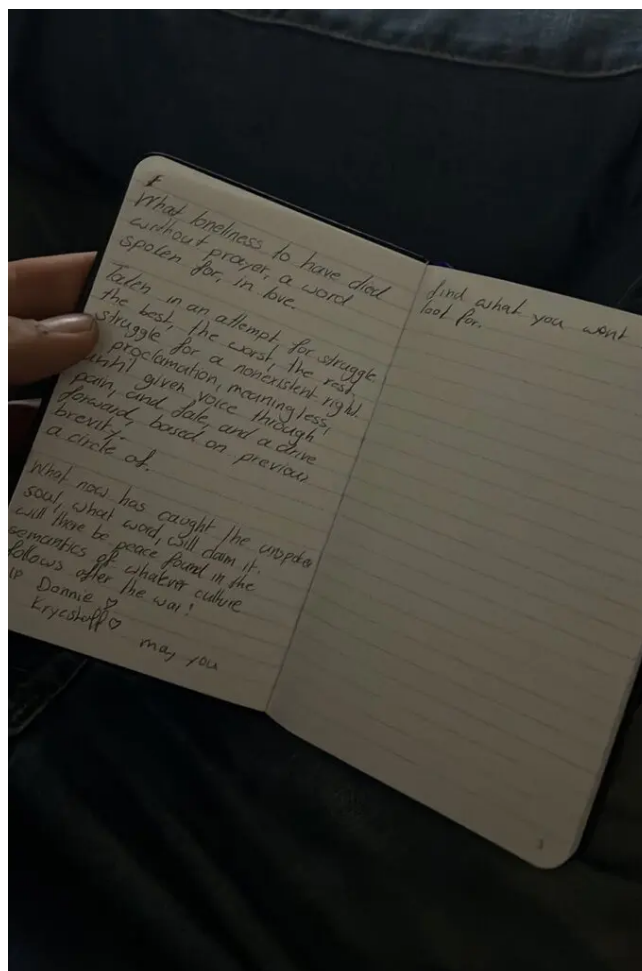 What loneliness to have died
without prayer, a word
spoken for, in love.
Taken in an attempt for struggle,
the best, the worst, the rest,
struggle for a nonexistent right.
proclamation, meaningless,
until given voice through
pain, and fate, and a drive
forward, based on previous
brevity.
a circle of.
What now has caught the unspoken
soul, what word, will claim it.
will there be peace found in the
semantics of whatever culture
follows after the war!
Donnie ♡
Krycstoff ♡
may you
find what you wont
look for.